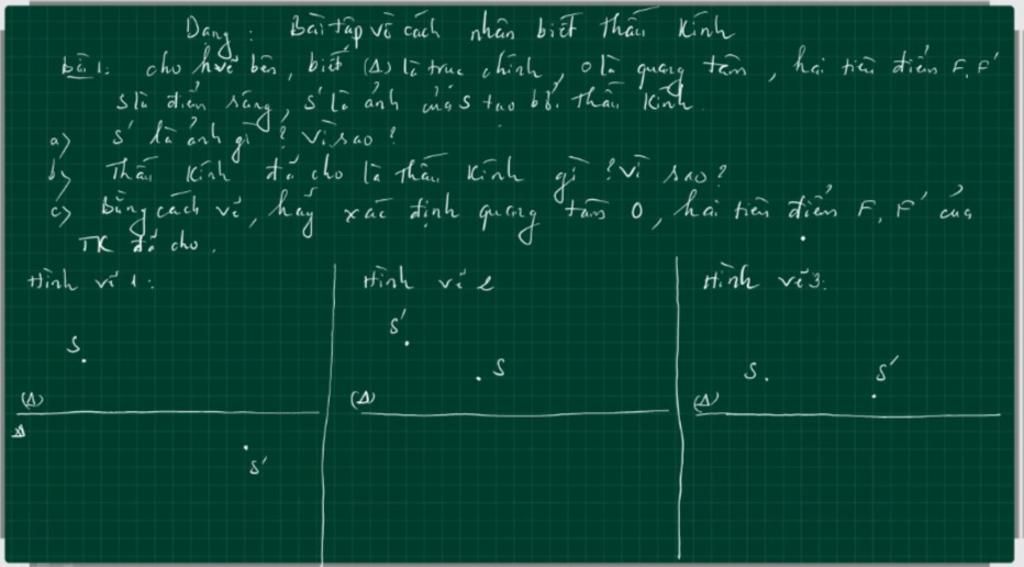 Dạng: Bài tập về cách nhận biết thấu kính
Bài 1: cho h.vẽ bên, biết (Δ) là trục chính, O là quang tâm, hai tiêu điểm F, F'
S là điểm sáng, S' là ảnh của S tạo bởi thấu kính.
a) S' là ảnh gì? Vì sao?
b) Thấu kính đã cho là thấu kính gì? Vì sao?
c) Bằng cách vẽ, hãy xác định quang tâm O, hai tiêu điểm F, F' của
TK đã cho.
Hình vẽ 1:
Hình vẽ 2
Hình vẽ 3:
S
S'
S
S
S'
(Δ)
(Δ)
(Δ)
S'